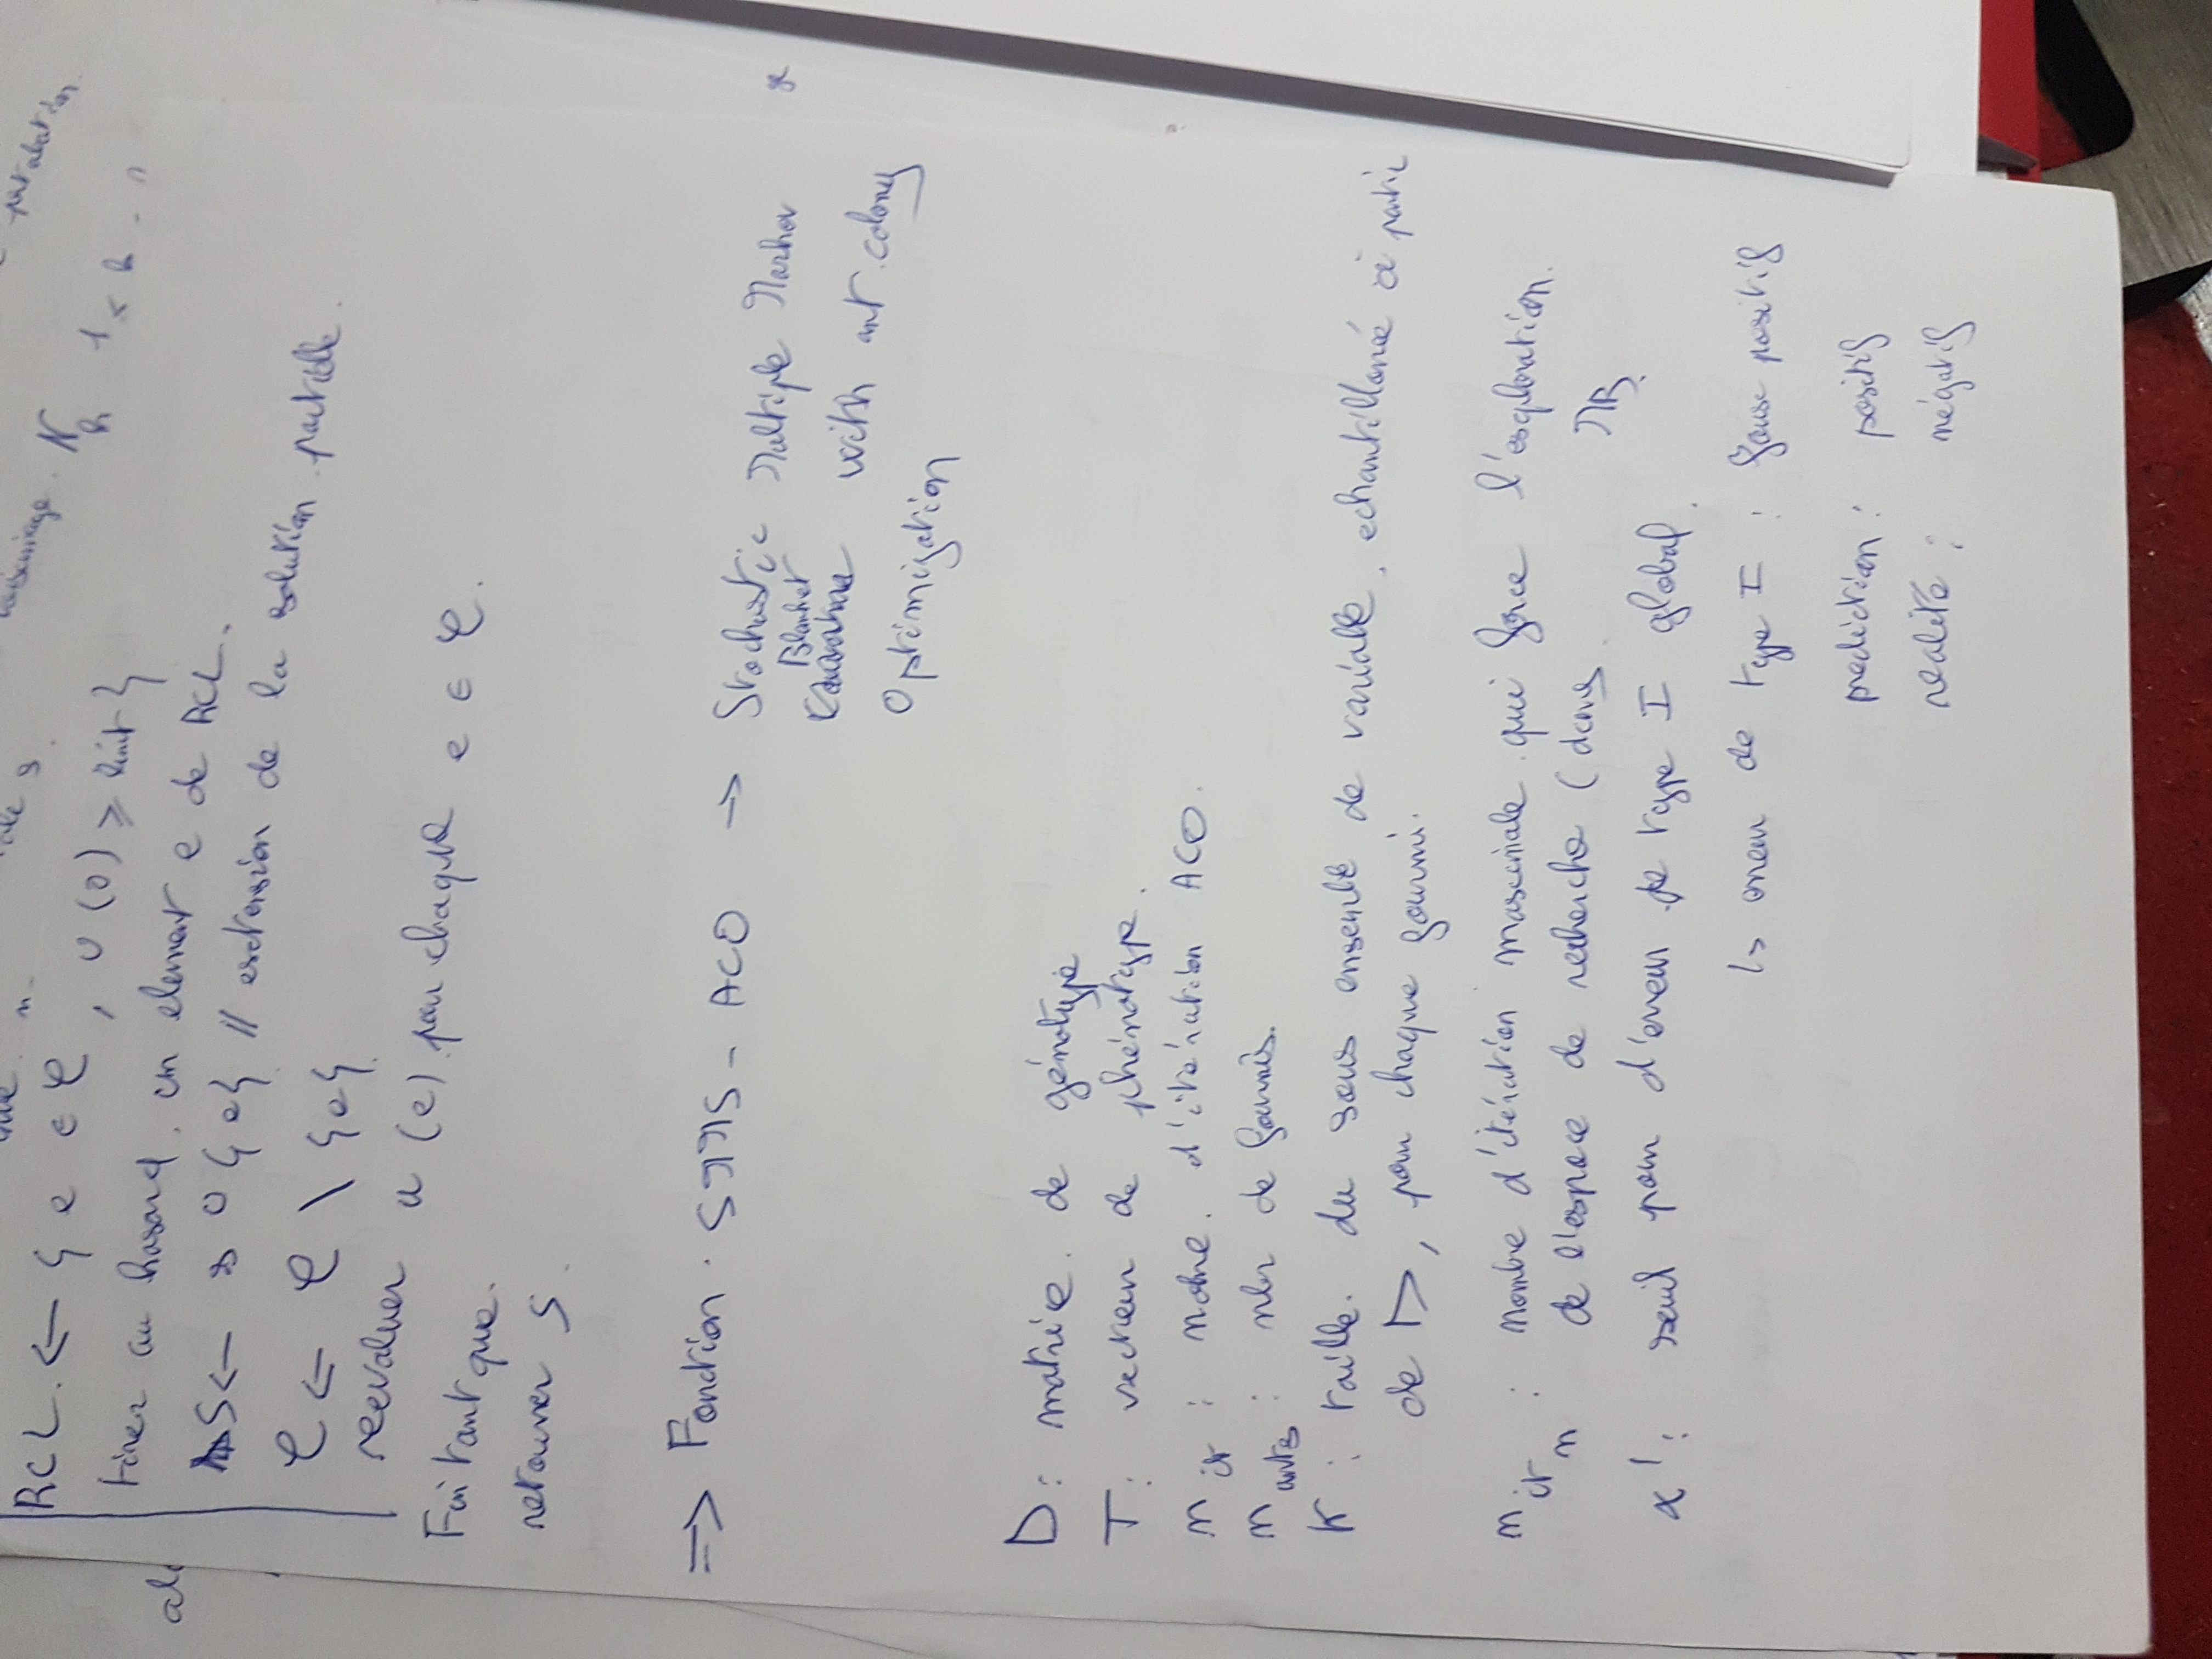 voisinage. N_k 1 ≤ k
RCL. ← { e ∈ C, u(e) ≥ limit }
tirer au hasard. un element e de RCL.
S ← s ∪ {e} // extension de la solution partielle.
C ← C \ {e}
reevaluer u (e) pour chaque e ∈ C.
Fin tant que.
retourner S.
⇒ Fonction SMMB - ACO → Stochastic Multiple Markov
Blanket
with ant colony
Optimization
D : matrice de génotype
T : vecteur de phénotype.
n it : nobre. d'itération ACO.
n ants : nbr de fourmis.
K : taille. du sous ensemble de variable, echantillonné à partir
de D, pour chaque fourmi.
n it n : nombre d'itération maximale qui force l'exploration.
de l'espace de recherche (dans MB
α' : seuil pour d'erreur de type I global.
↳ erreur de type I : faux positif
prediction : positif
realité : négatif